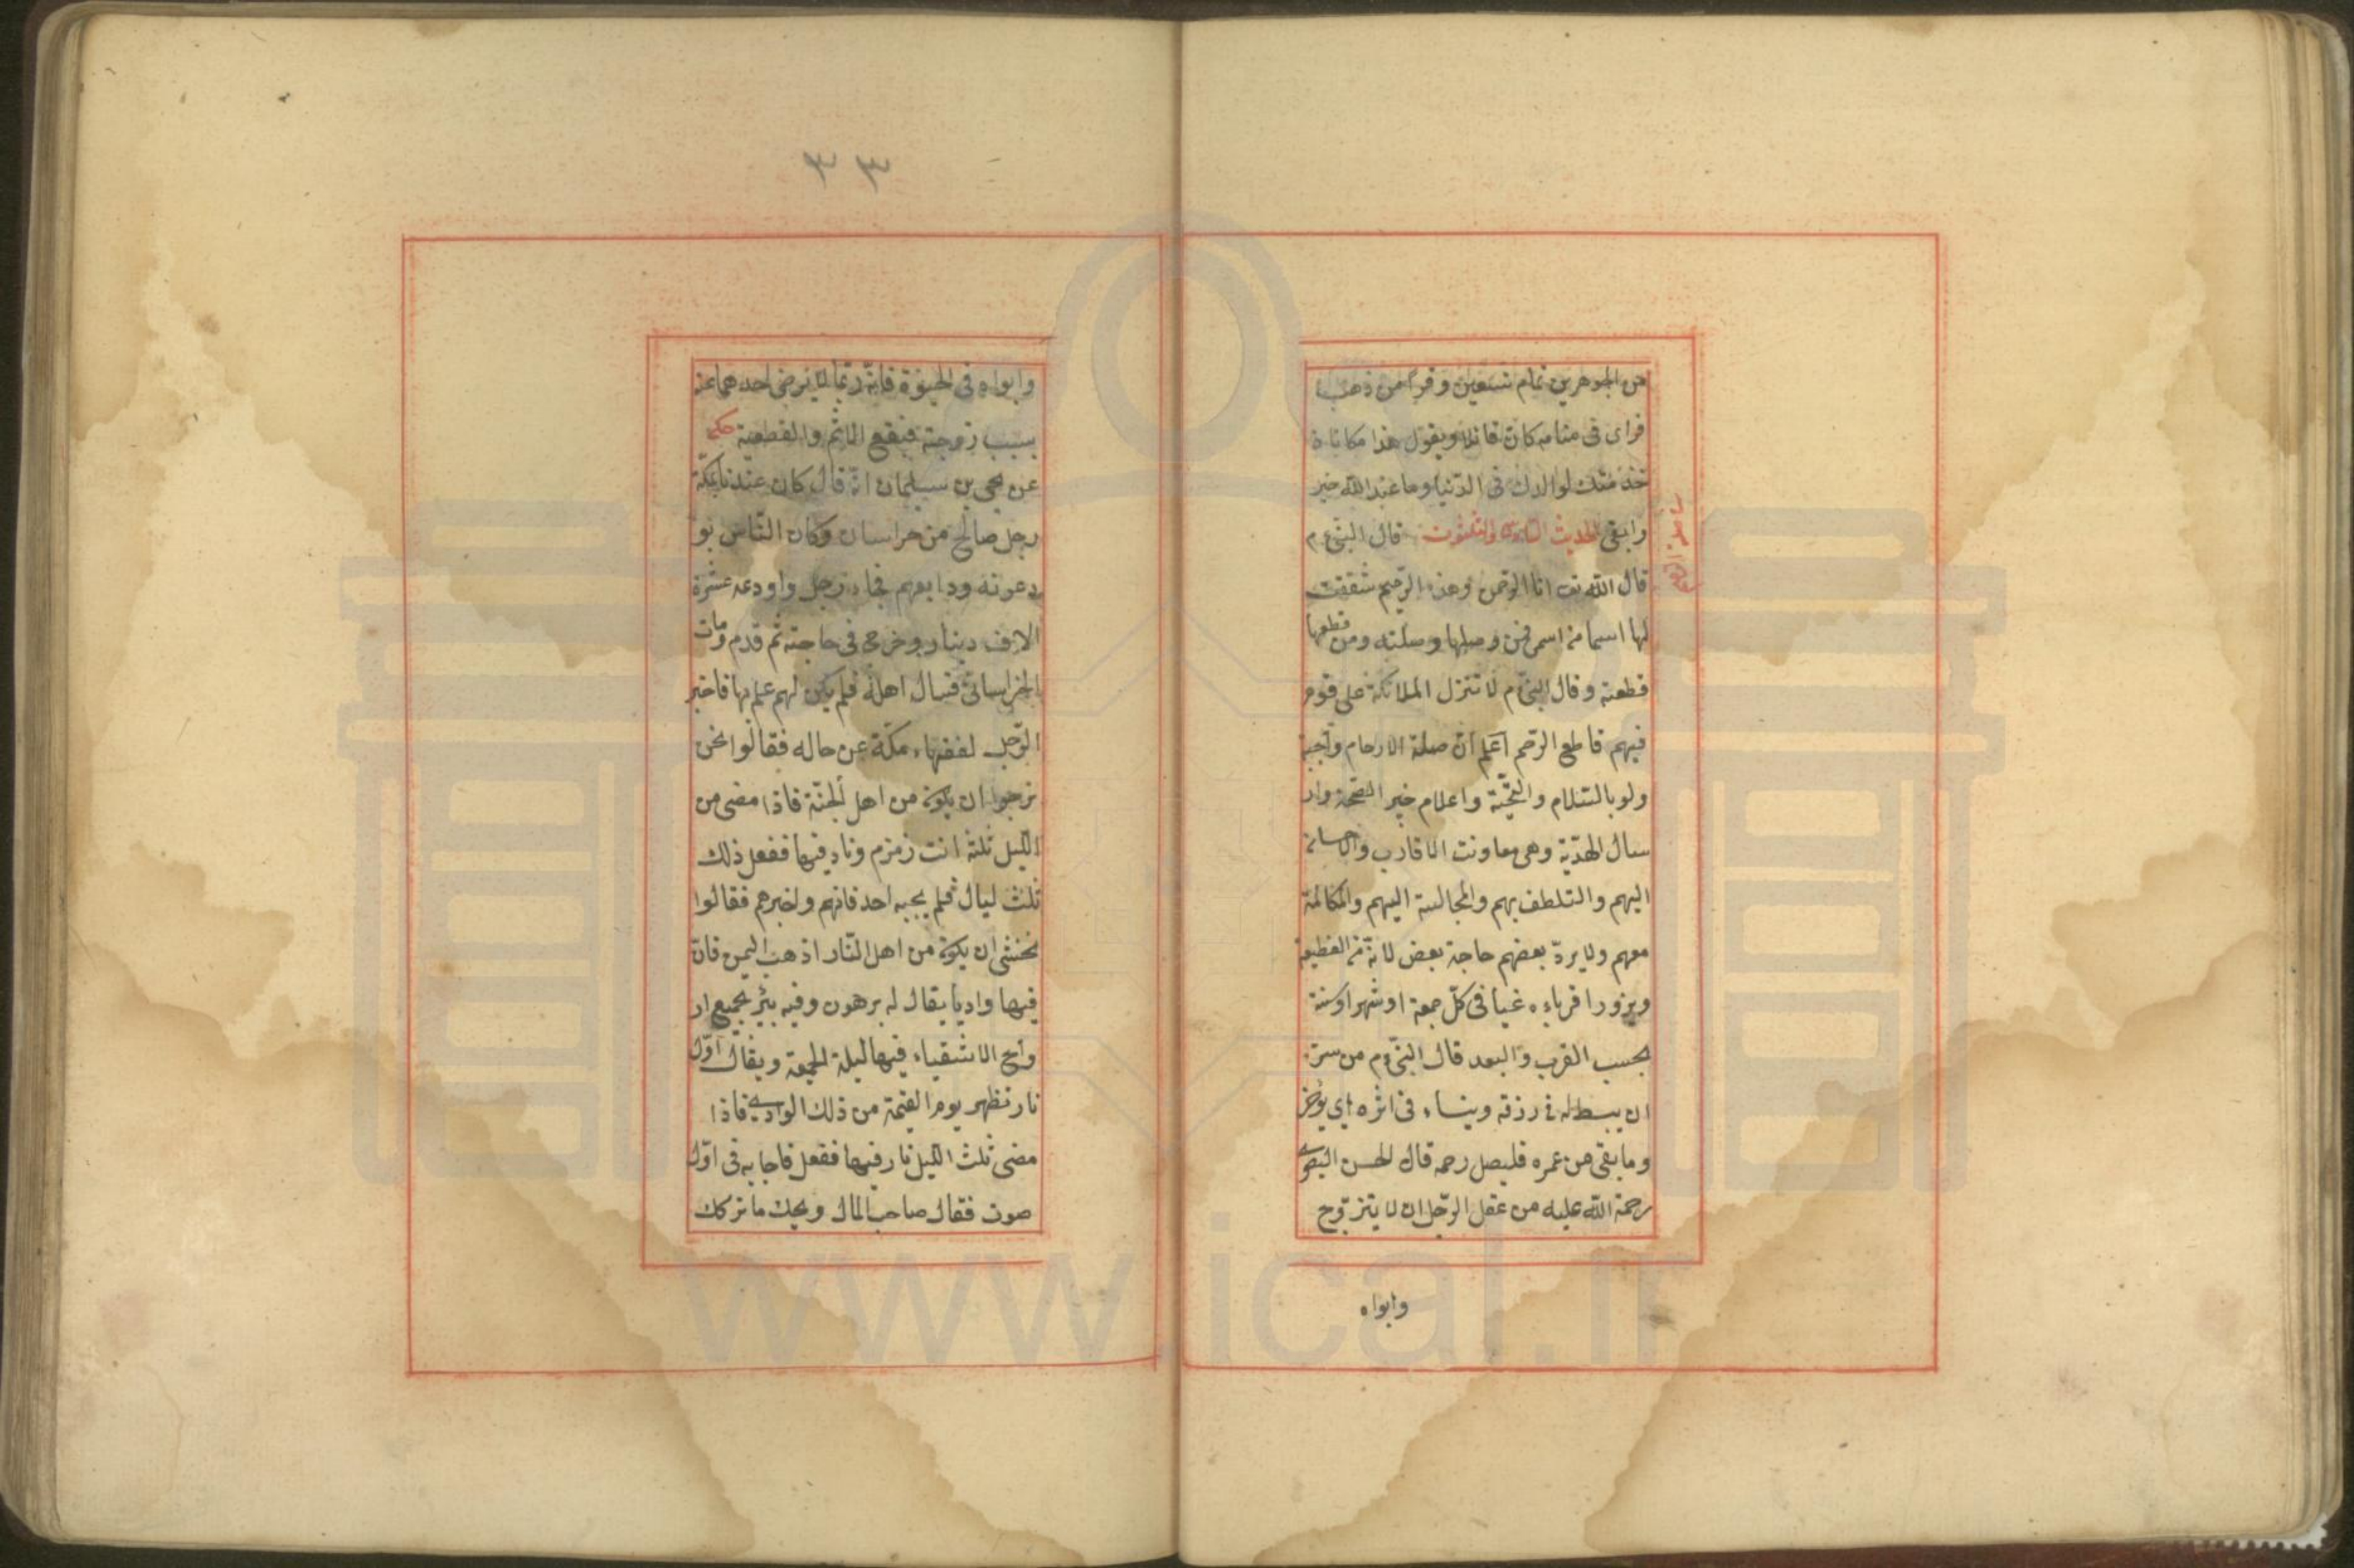 من الجوهرين تمام تسعين وقرا من ذهب
فراى فى منامه كان قائلا ويقول هذا مكافاة
خذمتك لوالدك فى الدّنيا وما عند اللّه خير
وابقى الحديث السّادس والثلثون قال النبىّ ءم
قال اللّه تع انا الرّحمن وهذه الرّحيم شققت
لها اسما من اسمى فمن وصلها وصلته ومن قطعها
قطعته وقال النبىّ م لا تنزل الملائكة على قوم
فيهم قاطع الرّحم اعلم انّ صلة الارحام واجبة
ولو بالسّلام والتحيّة واعلام خبر الصّحة وار
سال الهديّة وهى معاونت الاقارب والاحسان
اليهم والتلطف بهم والمجالسة اليهم والمكالمة
معهم ولا يردّ بعضهم حاجة بعض لانّه من القطيعة
ويزور اقرباءه غبا فى كلّ جمعة او شهر او سنة
بحسب القرب والبعد قال النبىّ ءم من سرّه
ان يبسط له فى رزقه وينساء فى اثره اي يؤخر
وما بقى من عمره فليصل رحمه قال الحسن البصرى
رحمة اللّه عليه من عقل الرّجل ان لا يتزوّج
وابواه
٣٣
وابواه فى الحيوة فانّه ربّما لا يرضى احدهما عنه
بسبب زوجته فيقع الماثم والقطعية حكى
عن يحيى بن سليمان انّه قال كان عندنا بمكّة
رجل صالح من خراسان وكان النّاس يو
دعونه ودايعهم فجاء رجل واودعه عشرة
الاف دينار وخرج فى حاجته ثم قدم ومات
الخراسانىّ فسال اهله فلم يكن لهم علم بها فاخبر
الرّجل لفقهاء مكّة عن حاله فقالوا نحن
نرجوا ان يكون من اهل الجنّة فاذا مضى من
اللّيل ثلثه ائت زمزم وناد فيها ففعل ذلك
ثلث ليال فلم يجبه احد فاتهم واخبرهم فقالوا
نخشى ان يكون من اهل النّار اذهب اليمن فانّ
فيها واديا يقال له برهون وفيه بئر يجميع ار
واح الاشقياء فيها ليلة الجمعة ويقال اوّل
نار تظهر يوم القيمة من ذلك الوادى فاذا
مضى ثلث اللّيل نار فيها ففعل فاجابه فى اوّل
صوت فقال صاحب المال ويحك ما تركك